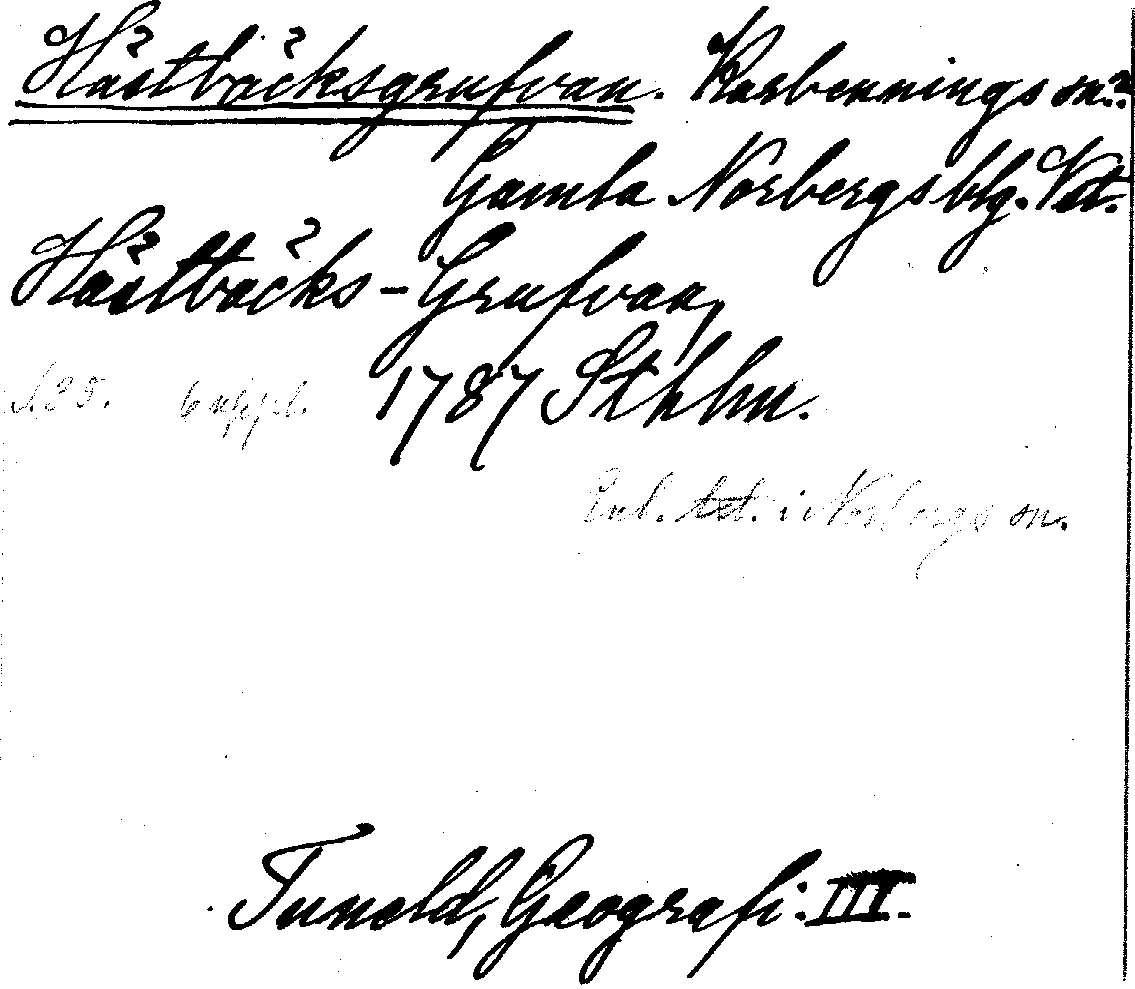 Hästbäcksgrufvan. Karbennings sn.?
Gamla Norbergs blg. Vst.
Hästbäcks-Grufvan,
s. 35. 6 uppl. 1787 Sthlm.
Enl. txt. i Norbergs sn.
Tuneld, Geografi: III.